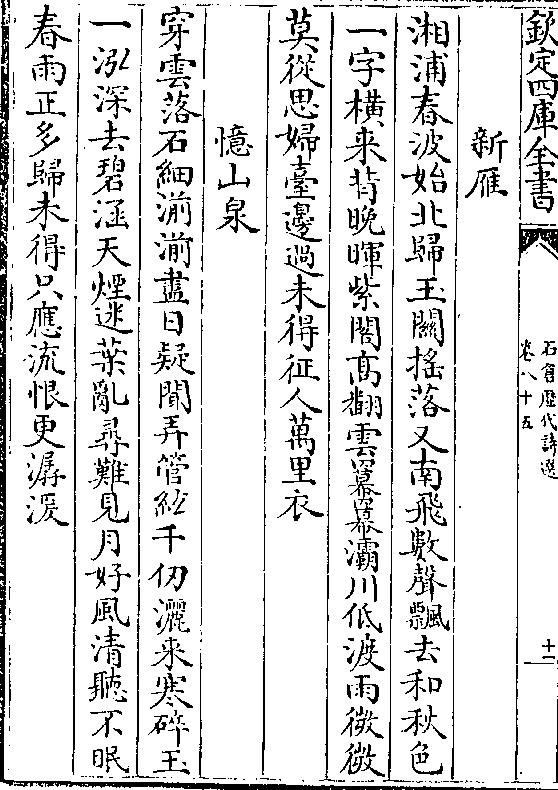 欽定四庫全書
石倉歷代詩選
卷八十五
十一
新雁
湘浦春波始北歸玉關搖落又南飛數聲飄去和秋色
一字橫来背晚暉紫閣髙翻雲羃羃灞川低渡雨微微
莫從思婦臺邊過未得征人萬里衣
憶山泉
穿雲落石細湔湔盡日疑聞弄管絃千仞灑来寒碎玉
一泓深去碧涵天煙迷葉亂尋難見月好風清聽不眠
春雨正多歸未得只應流恨更潺湲